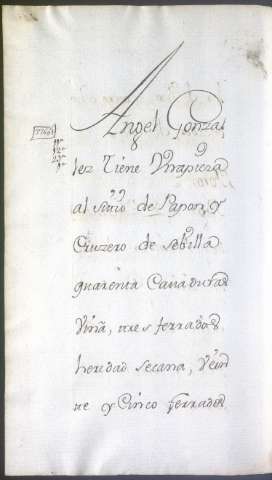 Angel Gonzal
lez Tiene Vna pieza
al sitio de Papon, y
Cruzero de sebilla
quarenta Cavaduras
Viña, tres ferrados
heredad secana, Vein
te y Cinco ferrados